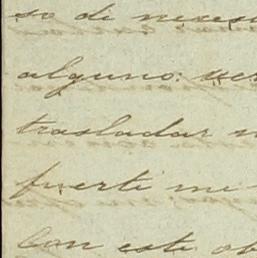 so di neces
alguno: 
trasladar
fuerti mi
Con este ob